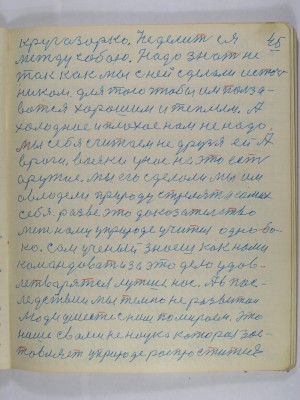 45
кругазорко. Не делит ся
между собою. Надо знат не
так как мы с ней сделали источ
ником для того чтобы им полза-
ватся хорошим и теплым. А
холодное и плохое нам не надо.
Мы себя считаем не друзя ей А
враги, всяки у нас на это ест
аружие мы его сделали мы им
овлодели природу стрелят
себя. разве это доказателство
мен нам у природе учится одно бо-
ко. сам ученый знаеш как нами
командоват а за это дело удов-
летварятся лутше нас. А в пос-
ледствии мы темно не развитаи
люди уместе с ним помираем. Это
наше с вами не наука которая зас-
тавляет у природе распроститися